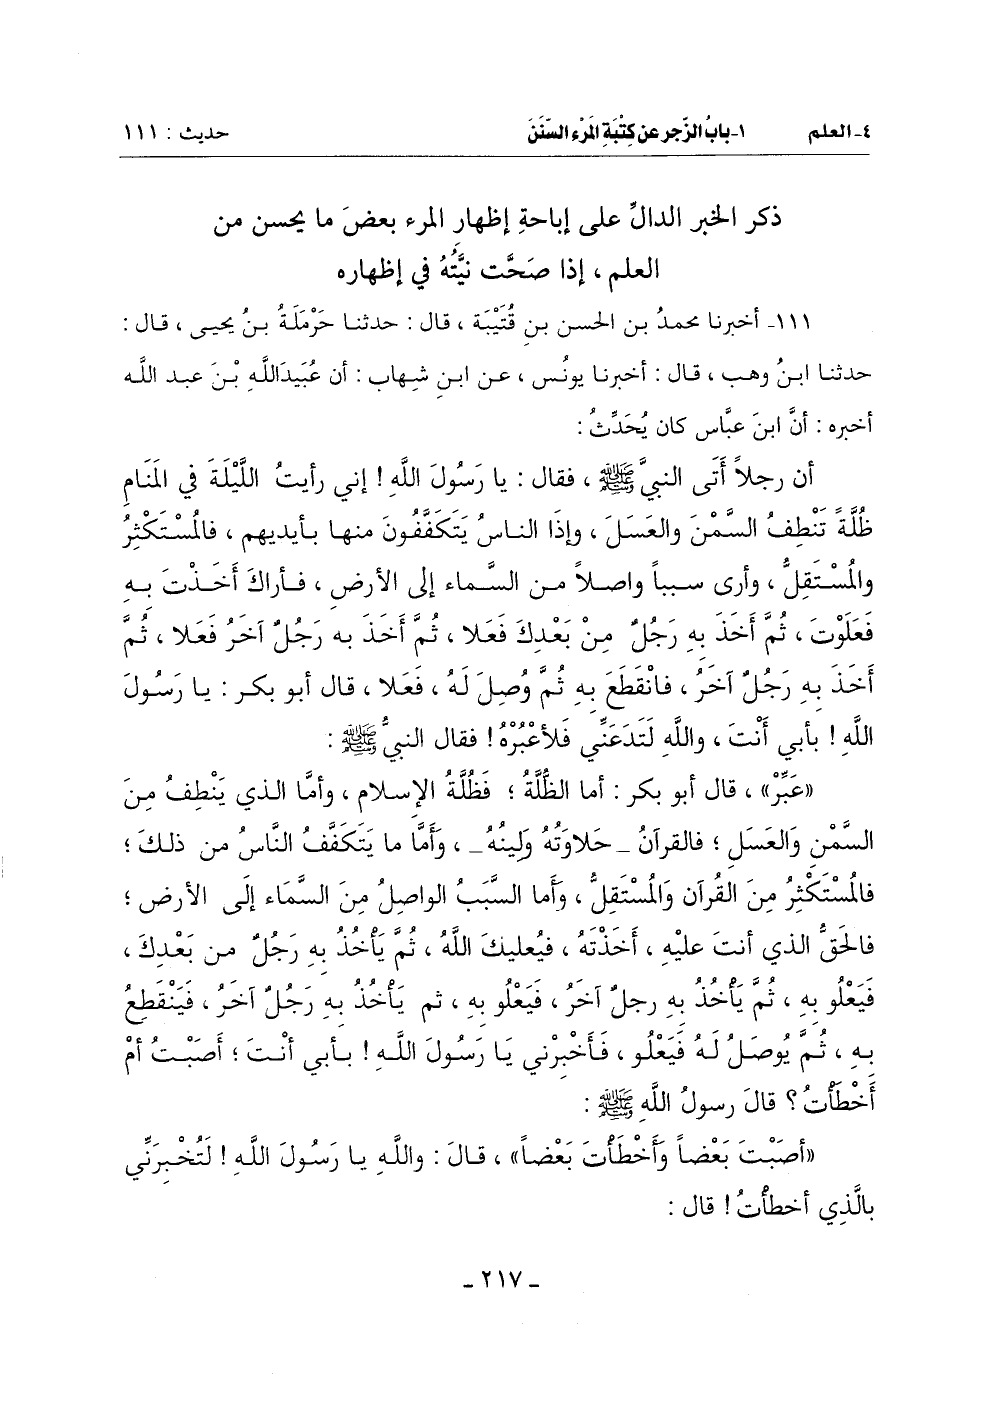 ٤- العلم ١- بابُ الزَّجر عن كِتْبَةِ المَرْء السُّنَنَ حديث : ١١١
ذكر الخبر الدالِّ على إباحةِ إظهار المرء بعضَ ما يحسن من
العلم ، إذا صَحَّت نيَّتُهُ في إظهاره
١١١- أخبرنا محمدُ بن الحسن بنِ قُتَيْبَة ، قال : حدثنا حَرْمَلَةُ بنُ يحيى ، قال :
حدثنا ابنُ وهب ، قال : أخبرنا يونُس ، عن ابنِ شِهاب : أن عُبَيدَاللَّهِ بْنَ عبد الله
أخبره : أنَّ ابنَ عبَّاس كان يُحَدِّثُ :
أن رجلاً أَتَى النبيَّ ﷺ ، فقال : يا رَسُولَ اللَّهِ ! إني رأيتُ اللَّيْلَةَ في المَنَامِ
ظُلَّةً تَنْطِفُ السَّمْنَ والعَسَلَ ، وإذَا الناسُ يَتَكَفَّفُونَ منها بأيديهم ، فالمُسْتَكْثِرُ
والمُسْتَقِلُّ ، وأرى سبباً واصلاً من السَّماء إلى الأرض ، فأراكَ أَخَذْتَ بهِ
فَعَلَوْتَ ، ثُمَّ أَخَذَ بِهِ رَجُلٌ مِنْ بَعْدِكَ فَعَلا ، ثُمَّ أَخَذَ به رَجُلٌ آخَرُ فَعَلا ، ثُمَّ
أَخَذَ بِهِ رَجُلٌ آخَرُ ، فانْقَطَعَ بِهِ ثُمَّ وُصِلَ لَهُ ، فَعَلا ، قال أبو بكر : يا رَسُولَ
اللَّهِ ! بأبي أَنْتَ ، واللَّهِ لَتَدَعَنِّي فَلأَعْبُرْهُ ! فقال النبيُّ ﷺ :
«عَبِّرْ» ، قال أبو بكر : أما الظُّلَّةُ ؛ فَظُلَّةُ الإسلام ، وأمَّا الذي يَنْطِفُ مِنَ
السَّمْنِ وَالعَسَلِ ؛ فالقرآنُ _حَلاوَتُهُ وَلِينُهُ_ ، وَأَمَّا ما يَتَكَفَّفُ النَّاسُ من ذلكَ ؛
فالمُسْتَكْثِرُ مِنَ القُرآن وَالمُسْتَقِلُّ ، وَأما السَّبَبُ الواصِلُ مِنَ السَّمَاء إلَى الأرضِ ؛
فالحَقُّ الذي أنتَ عليْهِ ، أَخَذْتَهُ ، فيُعليكَ اللَّهُ ، ثُمَّ يَأْخُذُ بِهِ رَجُلٌ من بَعْدِكَ ،
فَيَعْلُو بِهِ ، ثُمَّ يَأْخُذُ بِهِ رجلٌ آخَرُ ، فَيَعْلُو بِهِ ، ثم يَأْخُذُ بِهِ رَجُلٌ آخَرُ ، فَيَنْقَطِعُ
بِهِ ، ثُمَّ يُوصَلُ لَهُ فَيَعْلُو ، فَأَخْبِرْني يَا رَسُولَ اللَّهِ ! بأبي أنْتَ ؛ أَصَبْتُ أمْ
أَخْطَأْتُ ؟ قالَ رسولُ اللَّهِ ﷺ :
«أصَبْتَ بَعْضاً وَأَخْطَأْتَ بَعْضاً» ، قالَ : واللَّهِ يا رَسُولَ اللَّهِ ! لَتُخْبِرَنِّي
بالَّذِي أخطأْتُ ! قال :
_ ٢١٧ _